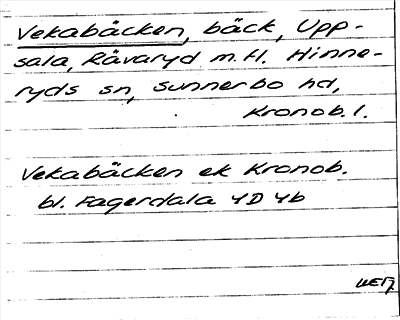 Vekabäcken, bäck, Upp-
sala, Råvaryd m.fl. Hinne-
ryds sn, Sunnerbo hd,
Kronob. l.
Vekabäcken ek Kronob.
bl. Fagerdala 4D 4b